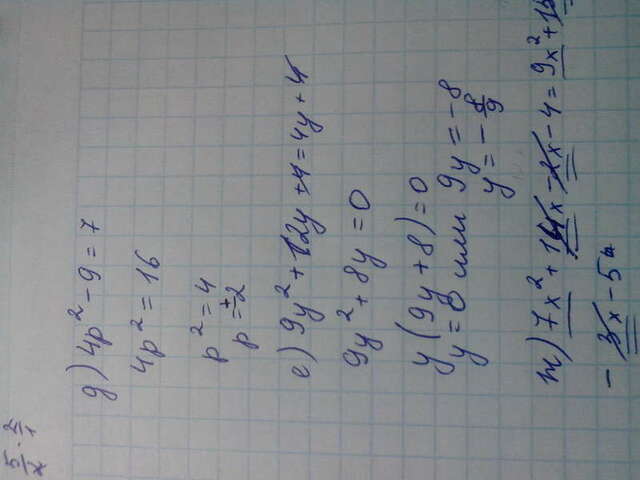 5/x · 2/1
д) 4p² - 9 = 7
4p² = 16
p² = 4
p = ±2
е) 9y² + 12y + 4 = 4y + 4
9y² + 8y = 0
y(9y + 8) = 0
y = 0 или 9y = -8
y = -8/9
ж) 7x² + 14x - 2x - 4 = 9x² + 15
- 3x - 5